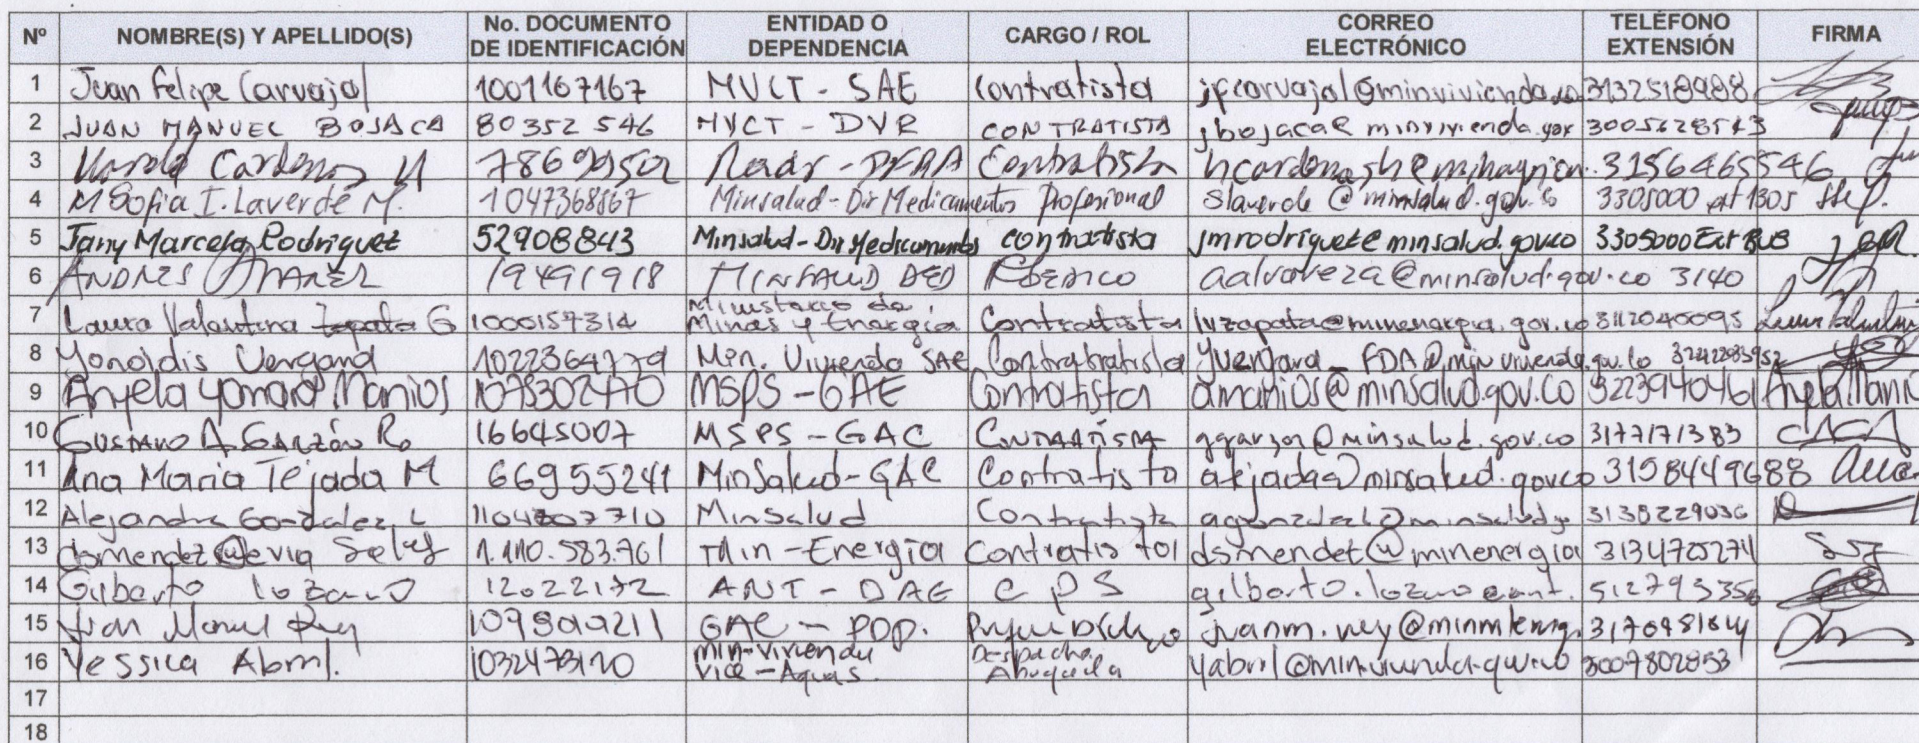 Nº NOMBRE(S) Y APELLIDO(S) No. DOCUMENTO DE IDENTIFICACIÓN ENTIDAD O DEPENDENCIA CARGO / ROL CORREO ELECTRÓNICO TELÉFONO EXTENSIÓN FIRMA
1 Juan Felipe Carvajal 1001167167 MVCT - SAE Contratista jfcarvajal@minvivienda.co 3132518988
2 JUAN MANUEL BOJACA 80352546 MVCT - DVR CONTRATISTA jbojaca@minvivienda.gov 3005628543
3 Harold Cardenas H Contratista 3156465546
4 M Sofia I. Laverde M. 1047368567 Minsalud - Dir Medicamentos Profesional slaverde@minsalud.gov.co 3305000 ext 1305
5 Jany Marcela Rodriguez 52908843 Minsalud - Dir Medicamentos contratista jmrodriguez@minsalud.gov.co 3305000 Ext
6 ANDRES ALVAREZ 19491918 MINSALUD aalvareza@minsalud.gov.co 3140
7 Laura Valentina Zapata G 1000157314 Ministerio de Minas y Energía Contratista lvzapata@minenergia.gov.co 3112040095
8 Yonoidis Vengara Min. Vivienda SAE Contratratista FDA@minvivienda.gov.co
9 Anyela Yomara Manios 1075302470 MSPS - GAE Contratista amanios@minsalud.gov.co 3223940461 Anyela Manio
10 GUSTAVO A GARZÓN R. 16645007 MSPS - GAC CONTRATISTA ggarzon@minsalud.gov.co 3177171383
11 Ana Maria Tejada M 66955241 MinSalud - GAC Contratista atejada@minsalud.gov.co 3158449688 Ana
12 Alejandra Gonzalez L 1104707710 MinSalud Contratista agonzalezl@minsalud.g 3138229036
13 dsmendez@ 1.110.583.761 Min - Energía Contratista dsmendez@minenergia 3134725274
14 Gilberto Lozano 12022172 ANT - DAE CPS gilberto.lozano@ant. 512793356
15 GAE - PDP.
16 Yessica Abril. 1032473120 Min-Vivienda Vice - Aguas. Despacho Abogada yabril@minvivienda.gov.co 3007802853
17
18